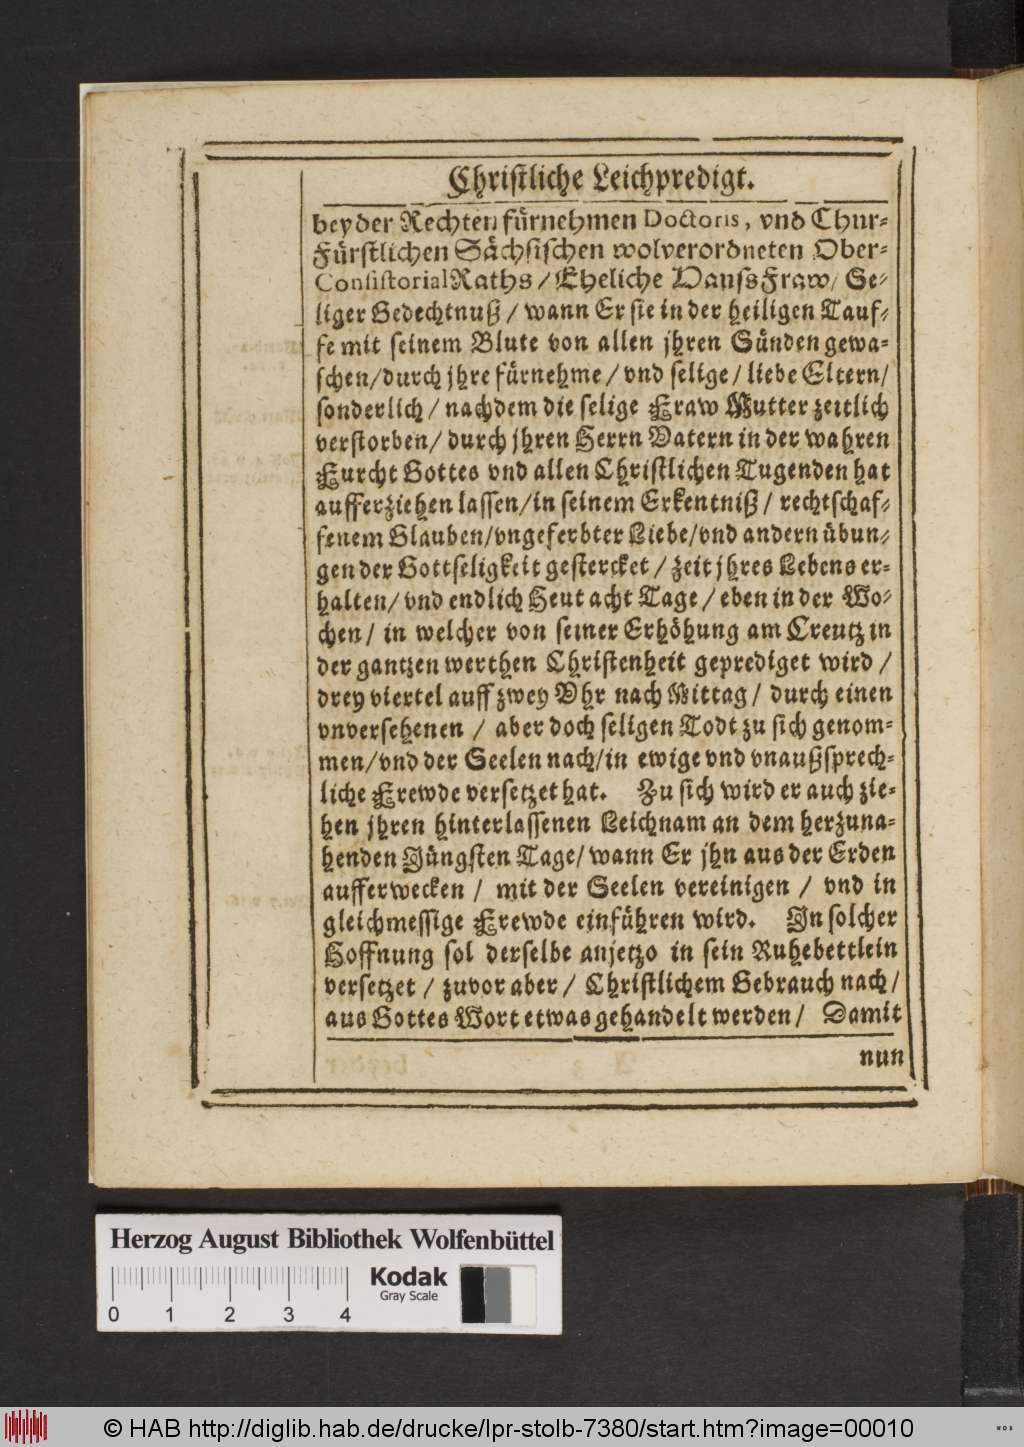 Christliche Leichpredigt.
beyder Rechten fürnehmen Doctoris, vnd Chur-
Fürstlichen Sächsischen wolverordneten Ober-
Consistorial Raths / Eheliche HaußFraw / Se-
liger Gedechtnuß / wann Er sie in der heiligen Tauf-
fe mit seinem Blute von allen jhren Sünden gewa-
schen / durch jhre fürnehme / vnd selige / liebe Eltern /
sonderlich / nachdem die selige Fraw Mutter zeitlich
verstorben / durch jhren Herrn Vatern in der wahren
Furcht Gottes vnd allen Christlichen Tugenden hat
aufferziehen lassen / in seinem Erkentniß / rechtschaf-
fenem Glauben / vngeferbter Liebe / vnd andern übun-
gen der Gottseligkeit gestercket / zeit jhres Lebens er-
halten / vnd endlich Heut acht Tage / eben in der Wo-
chen / in welcher von seiner Erhöhung am Creutz in
der gantzen werthen Christenheit geprediget wird /
drey viertel auff zwey Vhr nach Mittag / durch einen
vnversehenen / aber doch seligen Todt zu sich genom-
men / vnd der Seelen nach / in ewige vnd vnaußsprech-
liche Frewde versetzet hat. Zu sich wird er auch zie-
hen jhren hinterlassenen Leichnam an dem herzuna-
henden Jüngsten Tage / wann Er jhn aus der Erden
aufferwecken / mit der Seelen vereinigen / vnd in
gleichmessige Frewde einführen wird. In solcher
Hoffnung sol derselbe anjetzo in sein Ruhebettlein
versetzet / zuvor aber / Christlichem Gebrauch nach /
aus Gottes Wort etwas gehandelt werden / Damit
nun
Herzog August Bibliothek Wolfenbüttel
Kodak
Gray Scale
0 1 2 3 4
© HAB http://diglib.hab.de/drucke/lpr-stolb-7380/start.htm?image=00010